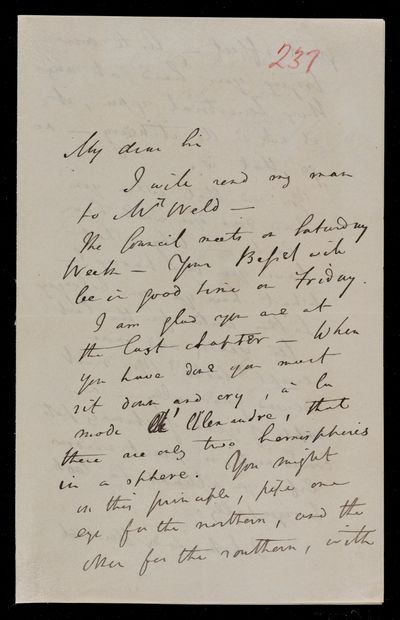 237
My dear Sir
I will send my man
to Mr Weld —
The Council meets on Saturday
Week — Your Bessel will
be in good time on Friday.
I am glad you are at
the last chapter — When
you have done you must
sit down and cry, à la
mode d'Alexandre, that
there are only two hemispheres
in a sphere. You might
on this principle, pipe one
eye for the northern, and the
other for the southern, with